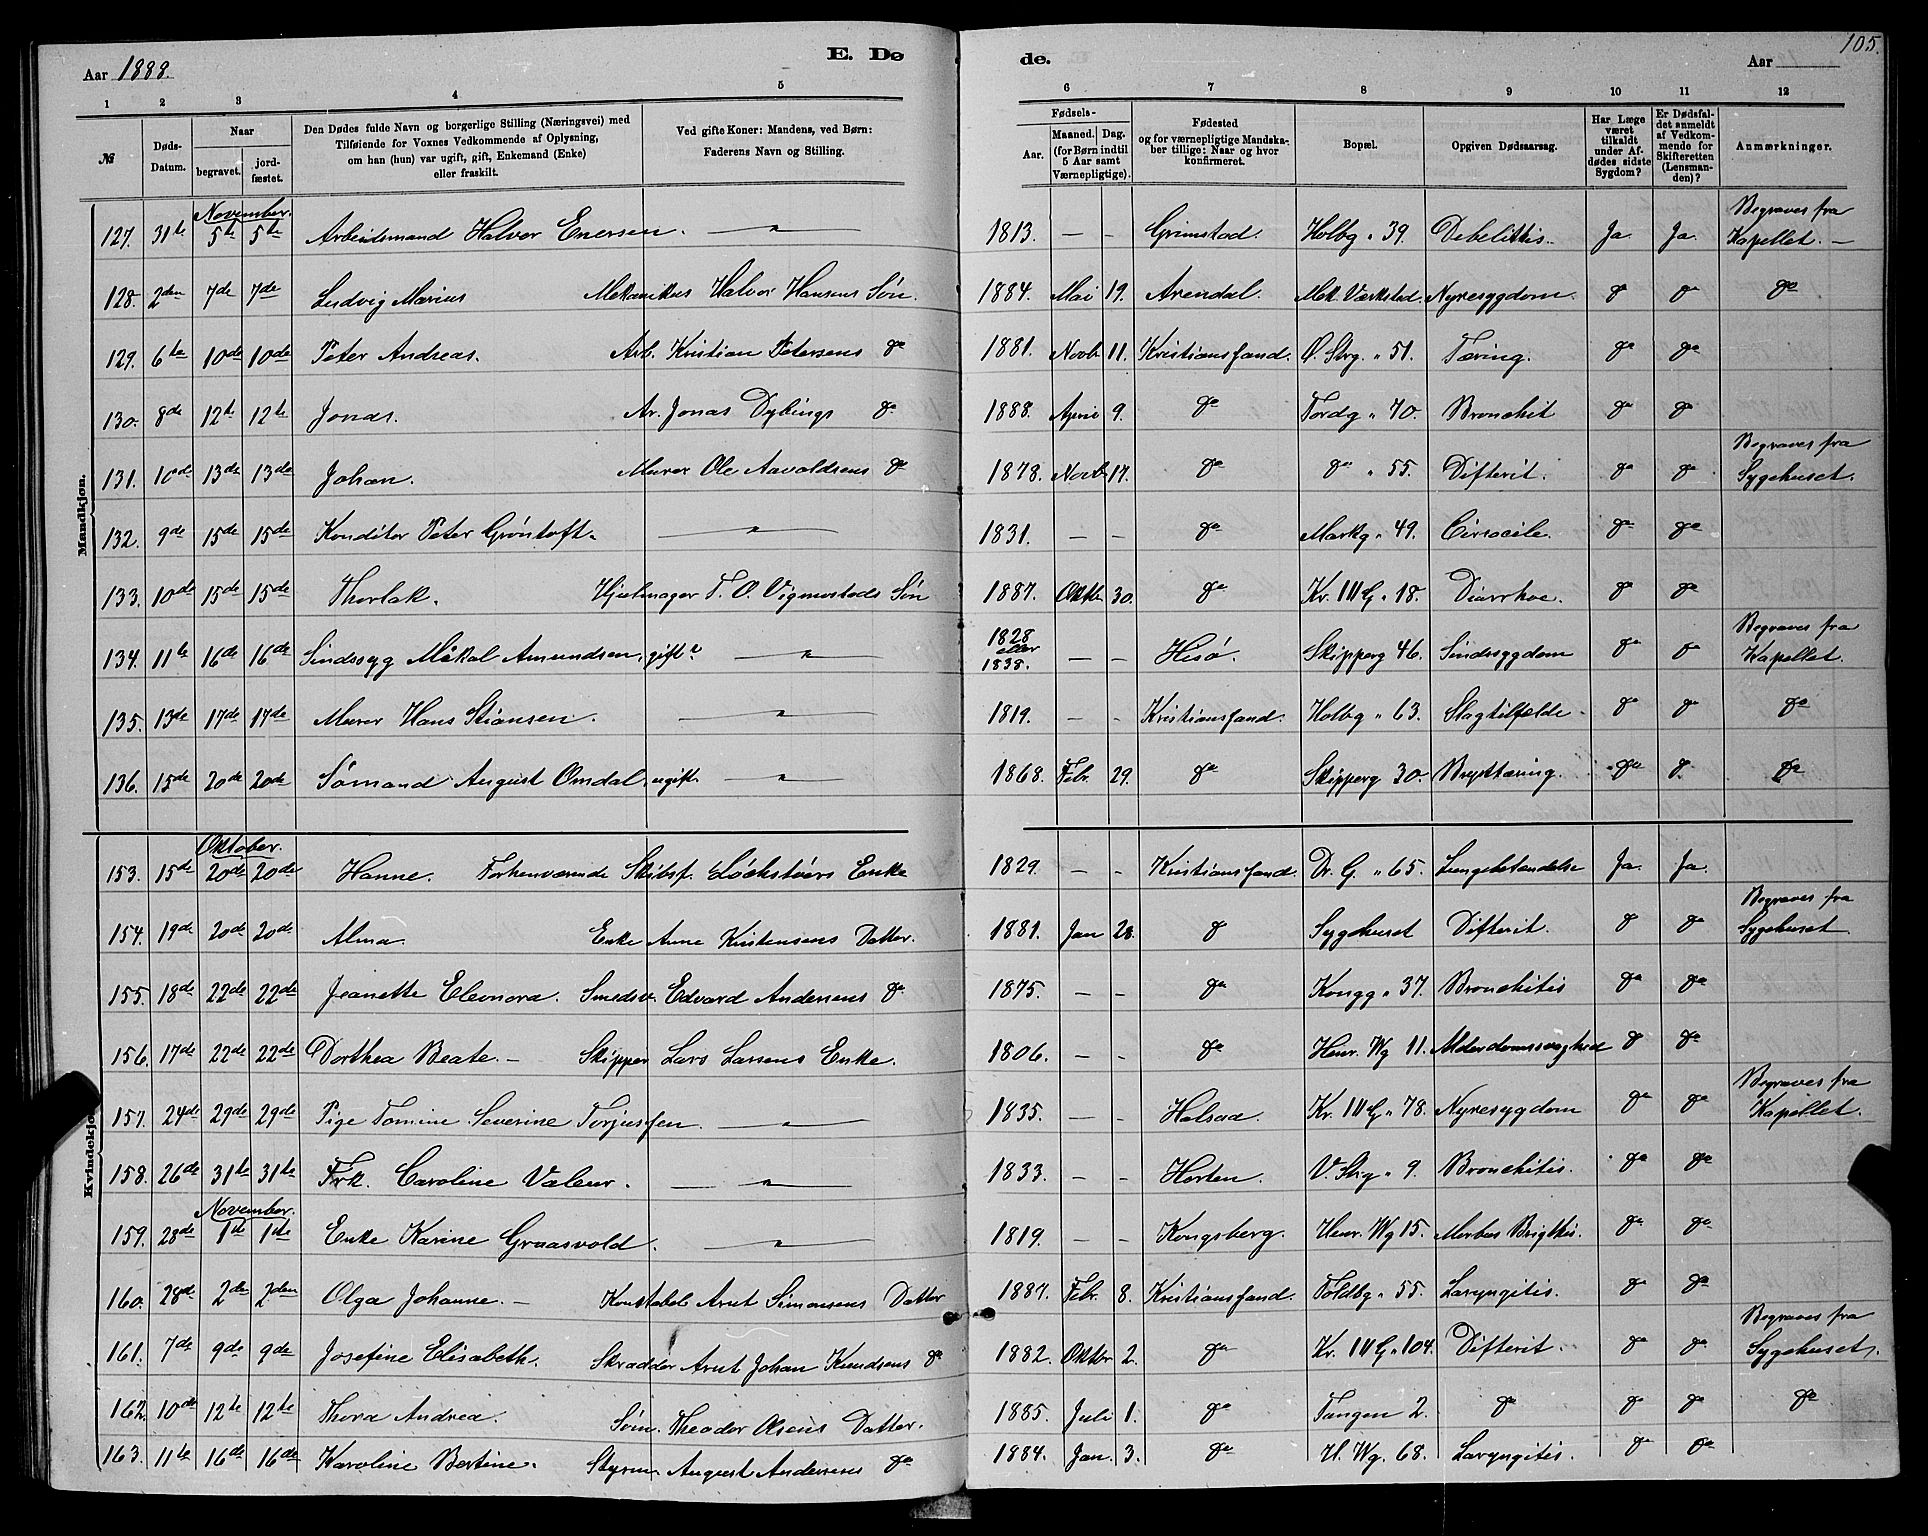 E. Døde.
105.
Aar 1888.
Aar
1 2 3 4 5 6 7 8 9 10 11 12
№
Døds-Datum.
Naar begravet. jordfæstet.
Den Dødes fulde Navn og borgerlige Stilling (Næringsvei) med Tilføiende for Voxnes Vedkommende af Oplysning, om han (hun) var ugift, gift, Enkemand (Enke) eller fraskilt.
Ved gifte Koner: Mandens, ved Børn: Faderens Navn og Stilling.
Fødsels- Aar. Maaned. Dag. (for Børn indtil 5 Aar samt Værnepligtige).
Fødested og for værnepligtige Mandskaber tillige: Naar og hvor konfirmeret.
Bopæl.
Opgiven Dødsaarsag.
Har Læge været tilkaldt under Afdødes sidste Sygdom?
Er Dødsfaldet anmeldt af Vedkommende for Skifteretten (Lensmanden)?
Anmærkninger.
Mandkjøn.
November.
127. 31te 5te 5te Arbeidsmand Halvor Enersen. — " — 1813. — - Grimstad. Holbg " 39. Debelittis. Ja Ja. Begraves fra Kapellet. —
128. 2den 7de 7de Ludvig Marius Mekanikus Halvor Hansens Søn. 1884. Mai 19. Arendal. Mek. Værksted. Nyresygdom. do do do
129. 6te 10de 10de Peter Andreas. Arb. Kristian Petersens do 1881. Novb. 11. Kristianssand. Ø. Strg. " 51. Tæring. do do
130. 8de 12te 12te Jonas. Ar. Jonas Dybings do 1888. April 9. do Tordg " 40. Bronchit do do
131. 10de 13de 13de Johan. Murer Ole Aavoldsens do 1878. Novb. 17. do do " 55. Difterit. do do Begraves fra Sygehuset.
132. 9de 15de 15de Konditor Peter Grøntoft. — " — 1831. — - do Markg " 49. Cirsocele. do do
133. 10de 15de 15de Thorlak. Hjulmager T. O. Vigmostads Søn 1887. Oktbr 30. do Kr. IV G " 18. Diarrhoe. do do
134. 11te 16de 16de Sindssyg Mikal Amundsen, gift? — " — 1828 eller 1838. — - Hisø. Skipperg 46. Sindssygdom do do Begraves fra Kapellet.
135. 13de 17de 17de Murer Hans Stiansen. — " — 1819. — - Kristianssand. Holbg " 63. Slagtilfælde. do do do
136. 15de 20de 20de Sømand August Omdal, ugift. — " — 1868. Febr. 29. do Skipperg 30. Brysttæring. do do do
Kvindekjøn.
Oktober.
153. 15de 20de 20de Hanne. Forhenværende Skibsf. Løchstøers Enke 1829. — - Kristianssand. Dr. G. " 65. Lungebetændelse Ja. Ja.
154. 19de 20de 20de Alma. Enke Anne Kristensens Datter. 1881. Jan 28. do Sygehuset Difterit. do do Begraves fra Sygehuset.
155. 18de 22de 22de Jeanette Eleonora. Smedsv. Edvard Andersens do 1875. — - do Kongg " 37. Bronchitis do do
156. 17de 22de 22de Dorthea Beate. — Skipper Lars Larsens Enke. 1806. — - do Henr. Wg 11. Alderdomssvaghed do do
157. 24de 29de 29de Pige Tomine Severine Torjussen. — " — 1835. — - Halsaa. Kr. IV G " 78. Nyresygdom do do Begraves fra Kapellet.
158. 26de 31te 31te Frk. Caroline Valeur. — " — 1833. — - Horten. V. Strg " 9. Bronchitis. do do
November.
159. 28de 1ste 1ste Enke Karine Graasvold. — " — 1819. — - Kongsberg. Henr. Wg 15. Morbus Brigthis. do do
160. 28de 2den 2den Olga Johanne. — Konstabel Arnt Simonsens Datter 1887. Febr. 8. Kristianssand. Toldbg " 55. Laryngitis. do do
161. 7de 9de 9de Josefine Elisabeth. Skrædder Arnt Johan Knudsens do 1882. Oktbr 2. do Kr. IV G " 104. Difterit. do do Begraves fra Sygehuset.
162. 10de 12te 12te Thora Andrea. Søm. Theodor Olsens Datter. 1885. Juli 1. do Tangen 2. do do do do
163. 11te 16de 16de Karoline Bertine. Styrm. August Andersens do 1884. Jan. 3. do H. Wg. 68. Laryngitis. do do